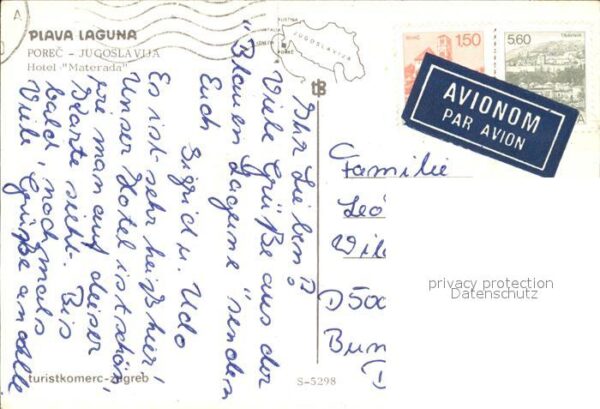 PLAVA LAGUNA
POREČ - JUGOSLAVIJA
Hotel "Materada"
A
JUGOSLAVIJA
POREČ
1,50
5,60
AVIONOM
PAR AVION
Ihr Lieben!
Viele Grüße aus der
"Blauen Lagune" senden
Euch
Sigrid u. Udo
Es ist sehr heiß hier!
Unser Hotel ist schön,
wie man auf dieser
Karte sieht. Bis
bald, nochmals
Viele Grüße an alle
Familie
Leo
Wil
D 500
Bun
(D
privacy protection
Datenschutz
turistkomerc-zagreb
S-5298